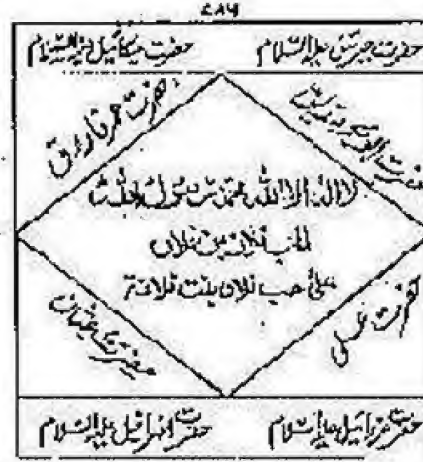 ۷۸۶
حضرت جبرئیل علیہ السلام
حضرت میکائیل علیہ السلام
حضرت ابوبکر صدیق
حضرت عمر فاروق
لا الہ الا اللہ محمد رسول اللہ
الحب فلاں بن فلاں
علیٰ حب فلاں بنت فلانۃ
حضرت علی
حضرت عثمان
حضرت عزرائیل علیہ السلام
حضرت اسرافیل علیہ السلام